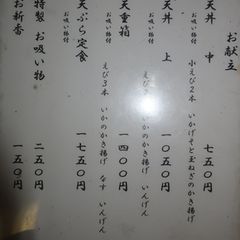 お献立
天丼 中 七五〇円
お吸い物付
小えび2本 いかげそと玉ねぎのかき揚げ
天丼 上 一〇五〇円
お吸い物付
えび いかのかき揚げ いんげん
天重箱 一四〇〇円
お吸い物付
えび いかのかき揚げ いんげん
天ぷら定食 一七五〇円
お吸い物付
えび3本 いかのかき揚げ なす いんげん
特製 お吸い物 二五〇円
お新香 一五〇円